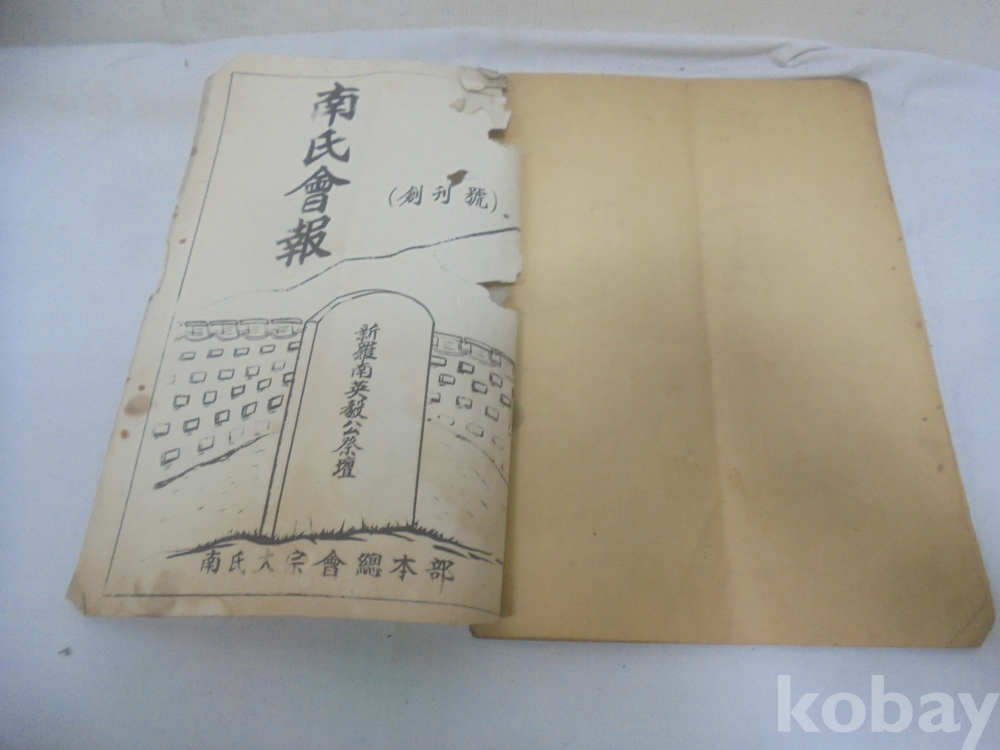 南氏會報
(創刊號)
新羅南英毅公祭壇
南氏大宗會總本部
kobay